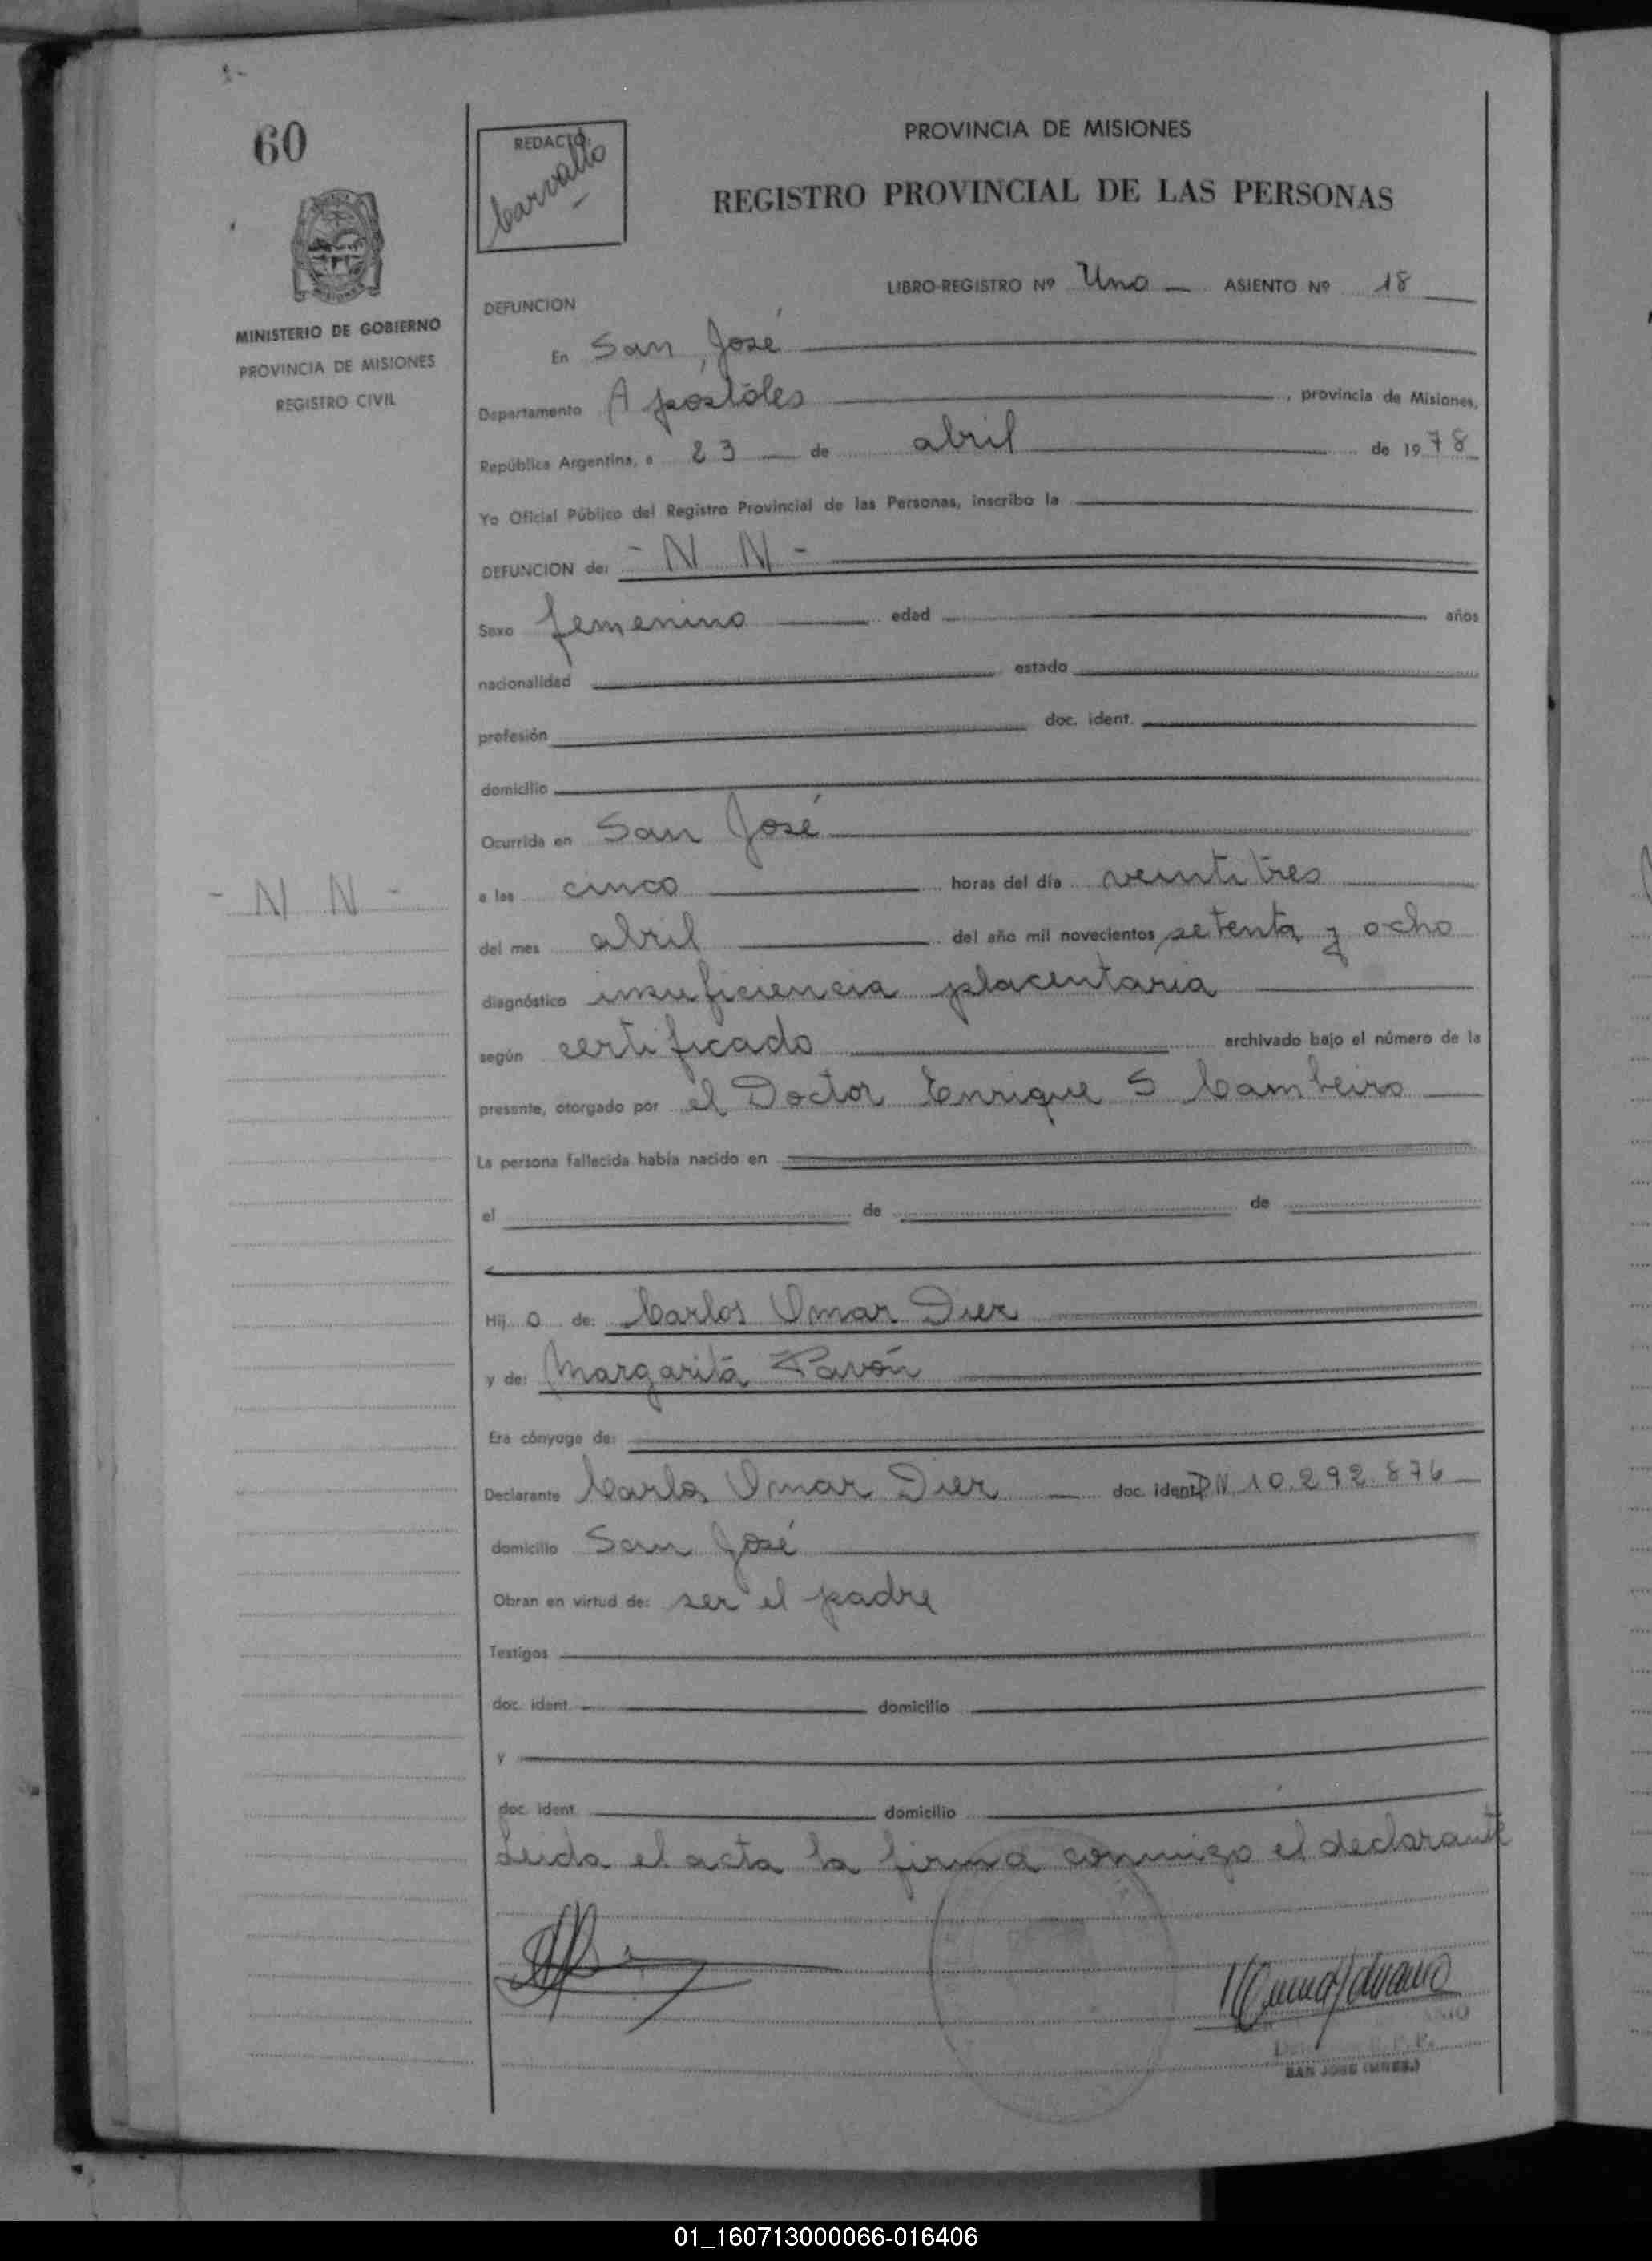 60
REDACTO:
Carvallo
PROVINCIA DE MISIONES
REGISTRO PROVINCIAL DE LAS PERSONAS
MINISTERIO DE GOBIERNO
PROVINCIA DE MISIONES
REGISTRO CIVIL
LIBRO-REGISTRO Nº Uno ASIENTO Nº 18
DEFUNCION
En San José
Departamento Apóstoles, provincia de Misiones,
República Argentina, a 23 de abril de 1978
Yo Oficial Público del Registro Provincial de las Personas, inscribo la
DEFUNCION de: - N N -
Sexo femenino edad años
nacionalidad estado
profesión doc. ident.
domicilio
Ocurrida en San José
- N N -
a las cinco horas del día veintitres
del mes abril del año mil novecientos setenta y ocho
diagnóstico insuficiencia placentaria
según certificado archivado bajo el número de la
presente, otorgado por el Doctor Enrique S Cambeiro
La persona fallecida había nacido en
el de de
Hij o de: Carlos Omar Dier
y de: Margarita Pavón
Era cónyuge de:
Declarante Carlos Omar Dier doc. ident. DN 10.292.876
domicilio San José
Obran en virtud de: ser el padre
Testigos
doc. ident. domicilio
y
doc. ident. domicilio
Leida el acta la firma conmigo el declarante
SAN JOSE (MNES.)
01_160713000066-016406